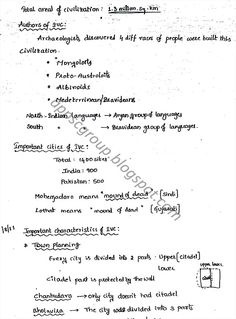 Total area of civilization : 1.3 million.sq.km
Authors of IVC:
Archaeologists discovered 4 diff races of people were built this
Civilization.
• Mongoloits
• Proto-Australoits
• Albinoids
• Mediterrinian/Dravidians
North-Indian languages → Aryan group of languages
South → Dravidian group of languages.
Important cities of IVC:
Total : 1400 cities
India : 900
Pakistan : 500
Mohenjodaro means "mound of dead" [Sind]
Lothal means "mound of dead" [Gujarat]
Important characteristics of IVC:
① Town Planning
Every city is divided into 2 parts - Upper [citadel]
Lower
upper lower
Citadel part is protected by the wall
Chanhudaro → only city doesn't had citadel
Dholavira → The city was divided into 3 parts
upscgroup.blogspot.com